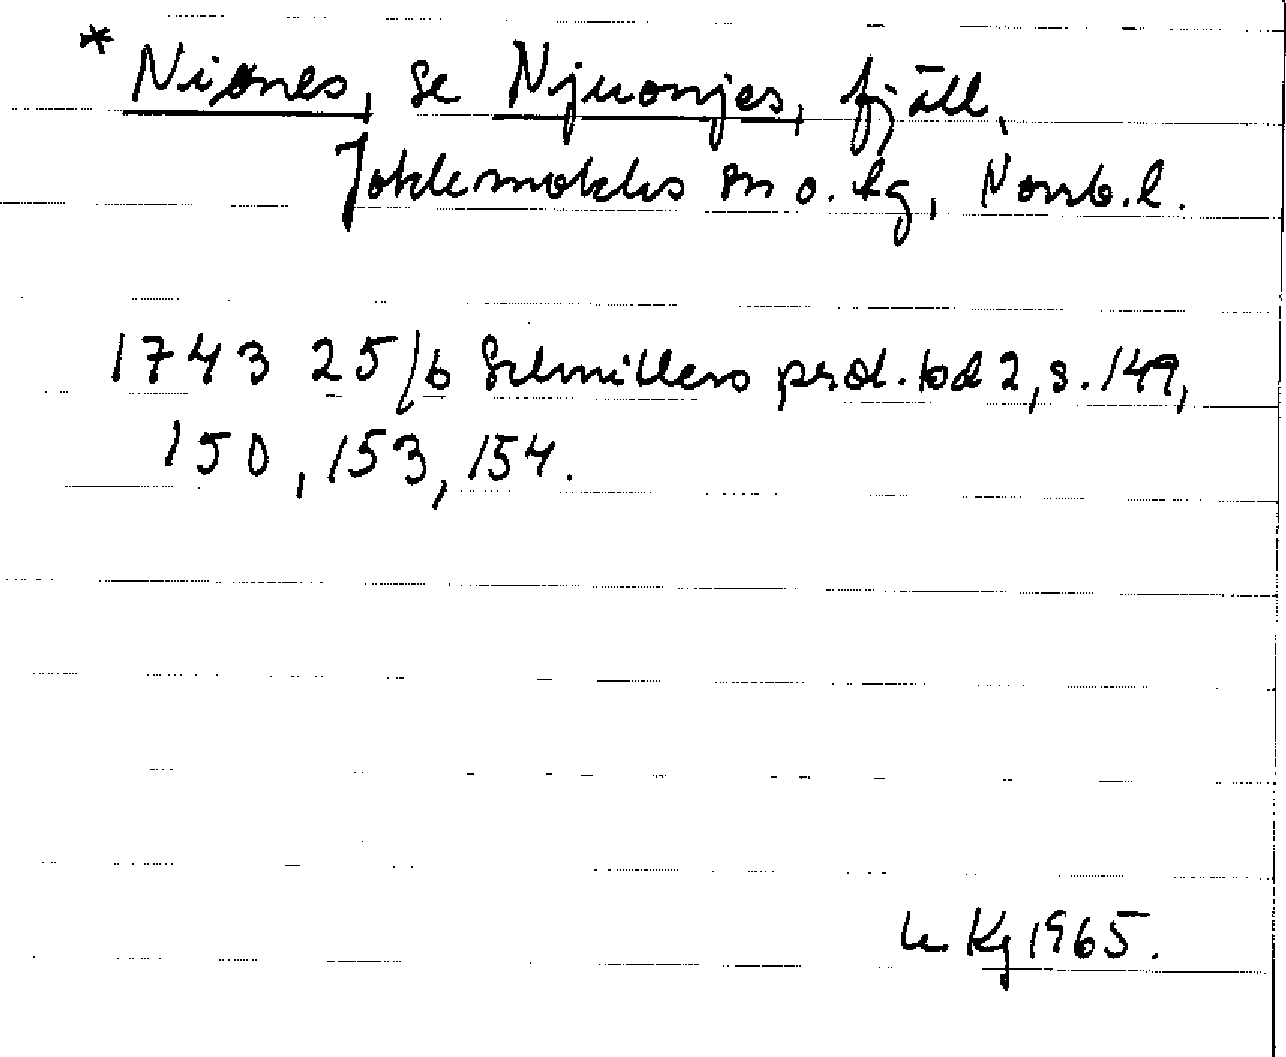 * Niones, se Njuonjes, fjäll,
Jokkmokks sn o. kg, Norrb.l.
1743 25/6 Schnitlers prot. bd 2, s. 149,
150, 153, 154.
Kg 1965.